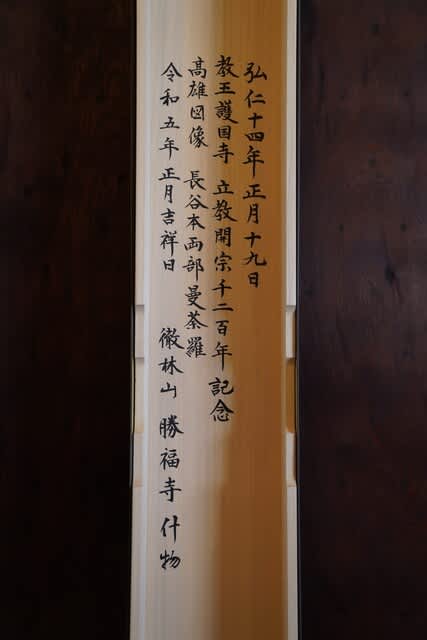 弘仁十四年 正月十九日
教王護国寺 立教開宗千二百年 記念
高雄図像 長谷本両部曼荼羅
令和五年 正月吉祥日 徹林山 勝福寺 什物